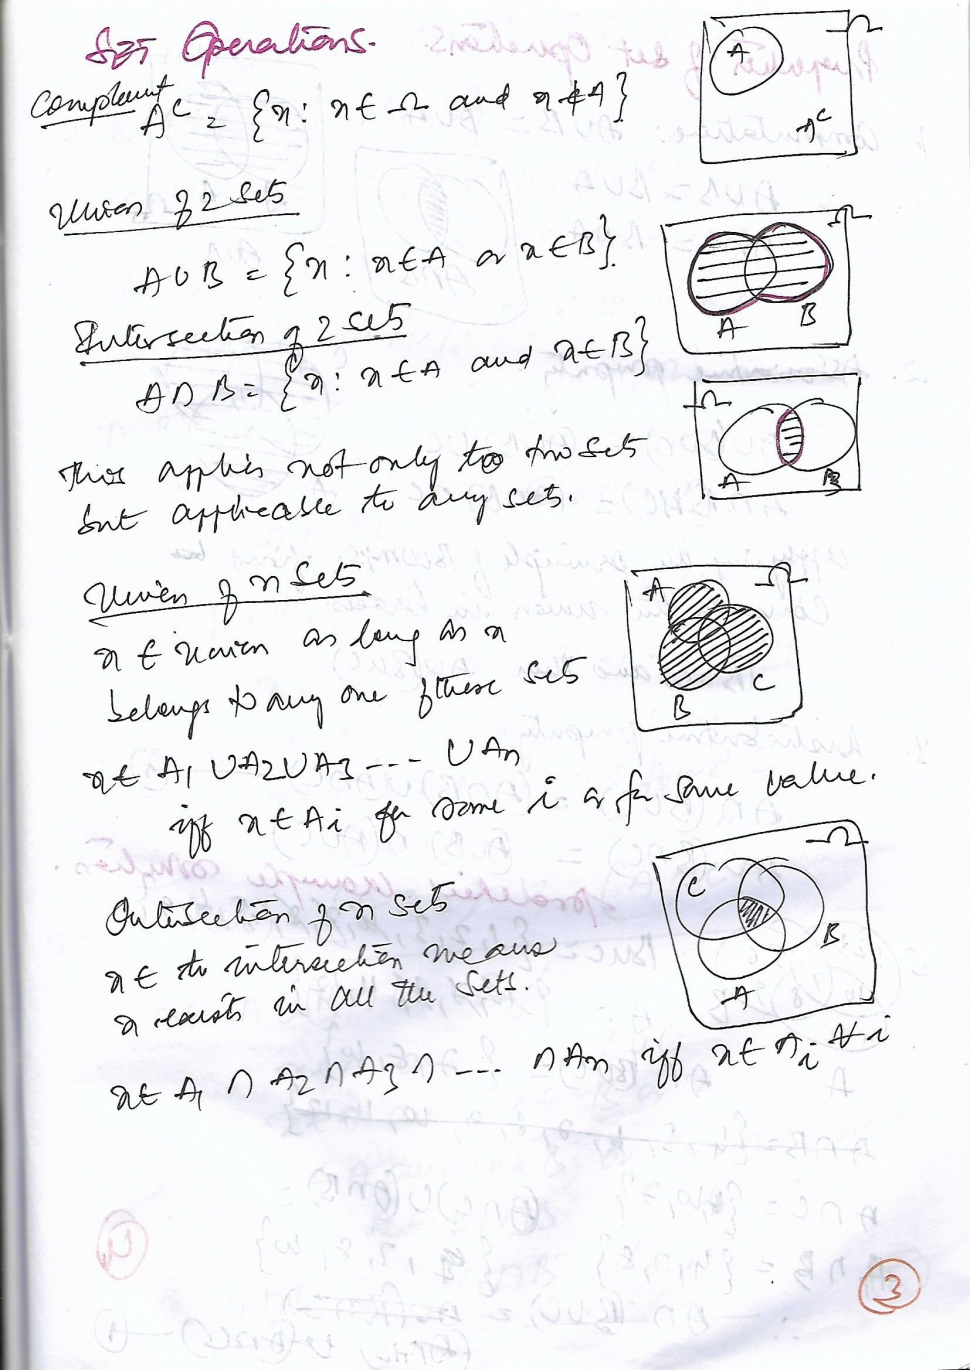 SET Operations.
A
Ω
A^c
Complemt
A^c = {x : x ∈ Ω and x ∉ A}
Union of 2 Sets
Ω
A ∪ B = {x : x ∈ A or x ∈ B}.
A B
Intersection of 2 sets
A ∩ B = {x : x ∈ A and x ∈ B}
Ω
A B
This applies not only to two sets
but applicable to any sets.
Union of n Sets
A Ω
B C
x ∈ Union as long as x
belongs to any one of these sets
x ∈ A1 ∪ A2 ∪ A3 --- ∪ An
iff x ∈ Ai for some i or for some value.
Ω
C B
A
Intersection of n sets
x ∈ to intersection means
x exists in all the sets.
x ∈ A1 ∩ A2 ∩ A3 ∩ --- ∩ An iff x ∈ Ai ∀ i
3